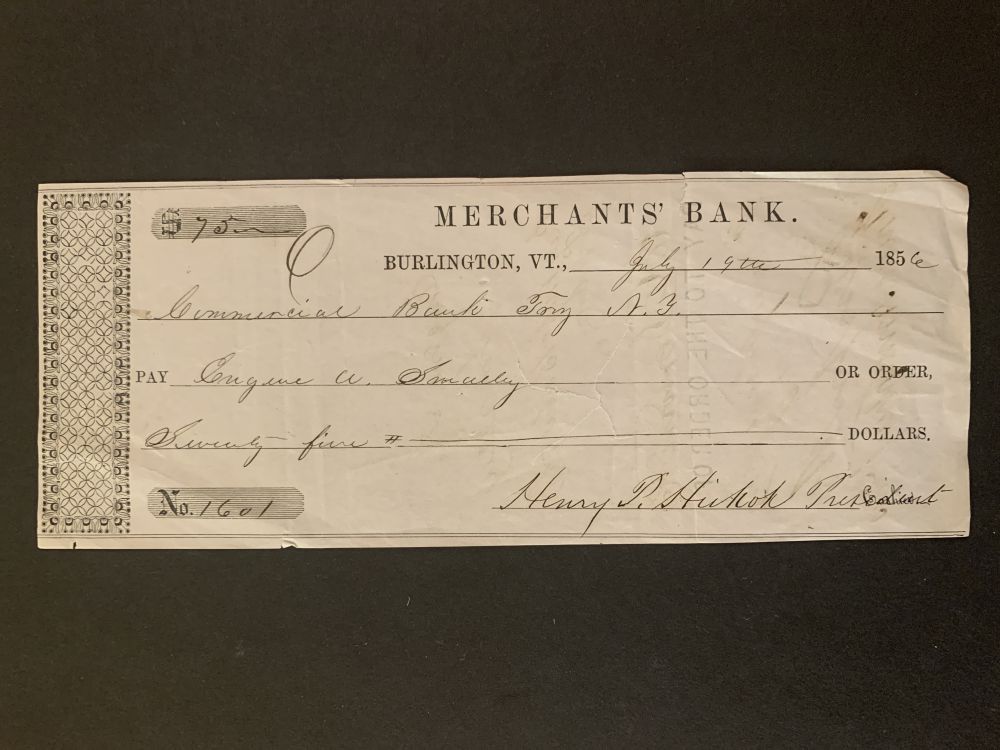 $ 75
MERCHANTS' BANK.
BURLINGTON, VT., July 19th 1856
Commercial Bank Troy N.Y.
PAY Eugene A. Smalley OR ORDER,
Seventy five # DOLLARS.
No. 1601
Henry P. Hickok President